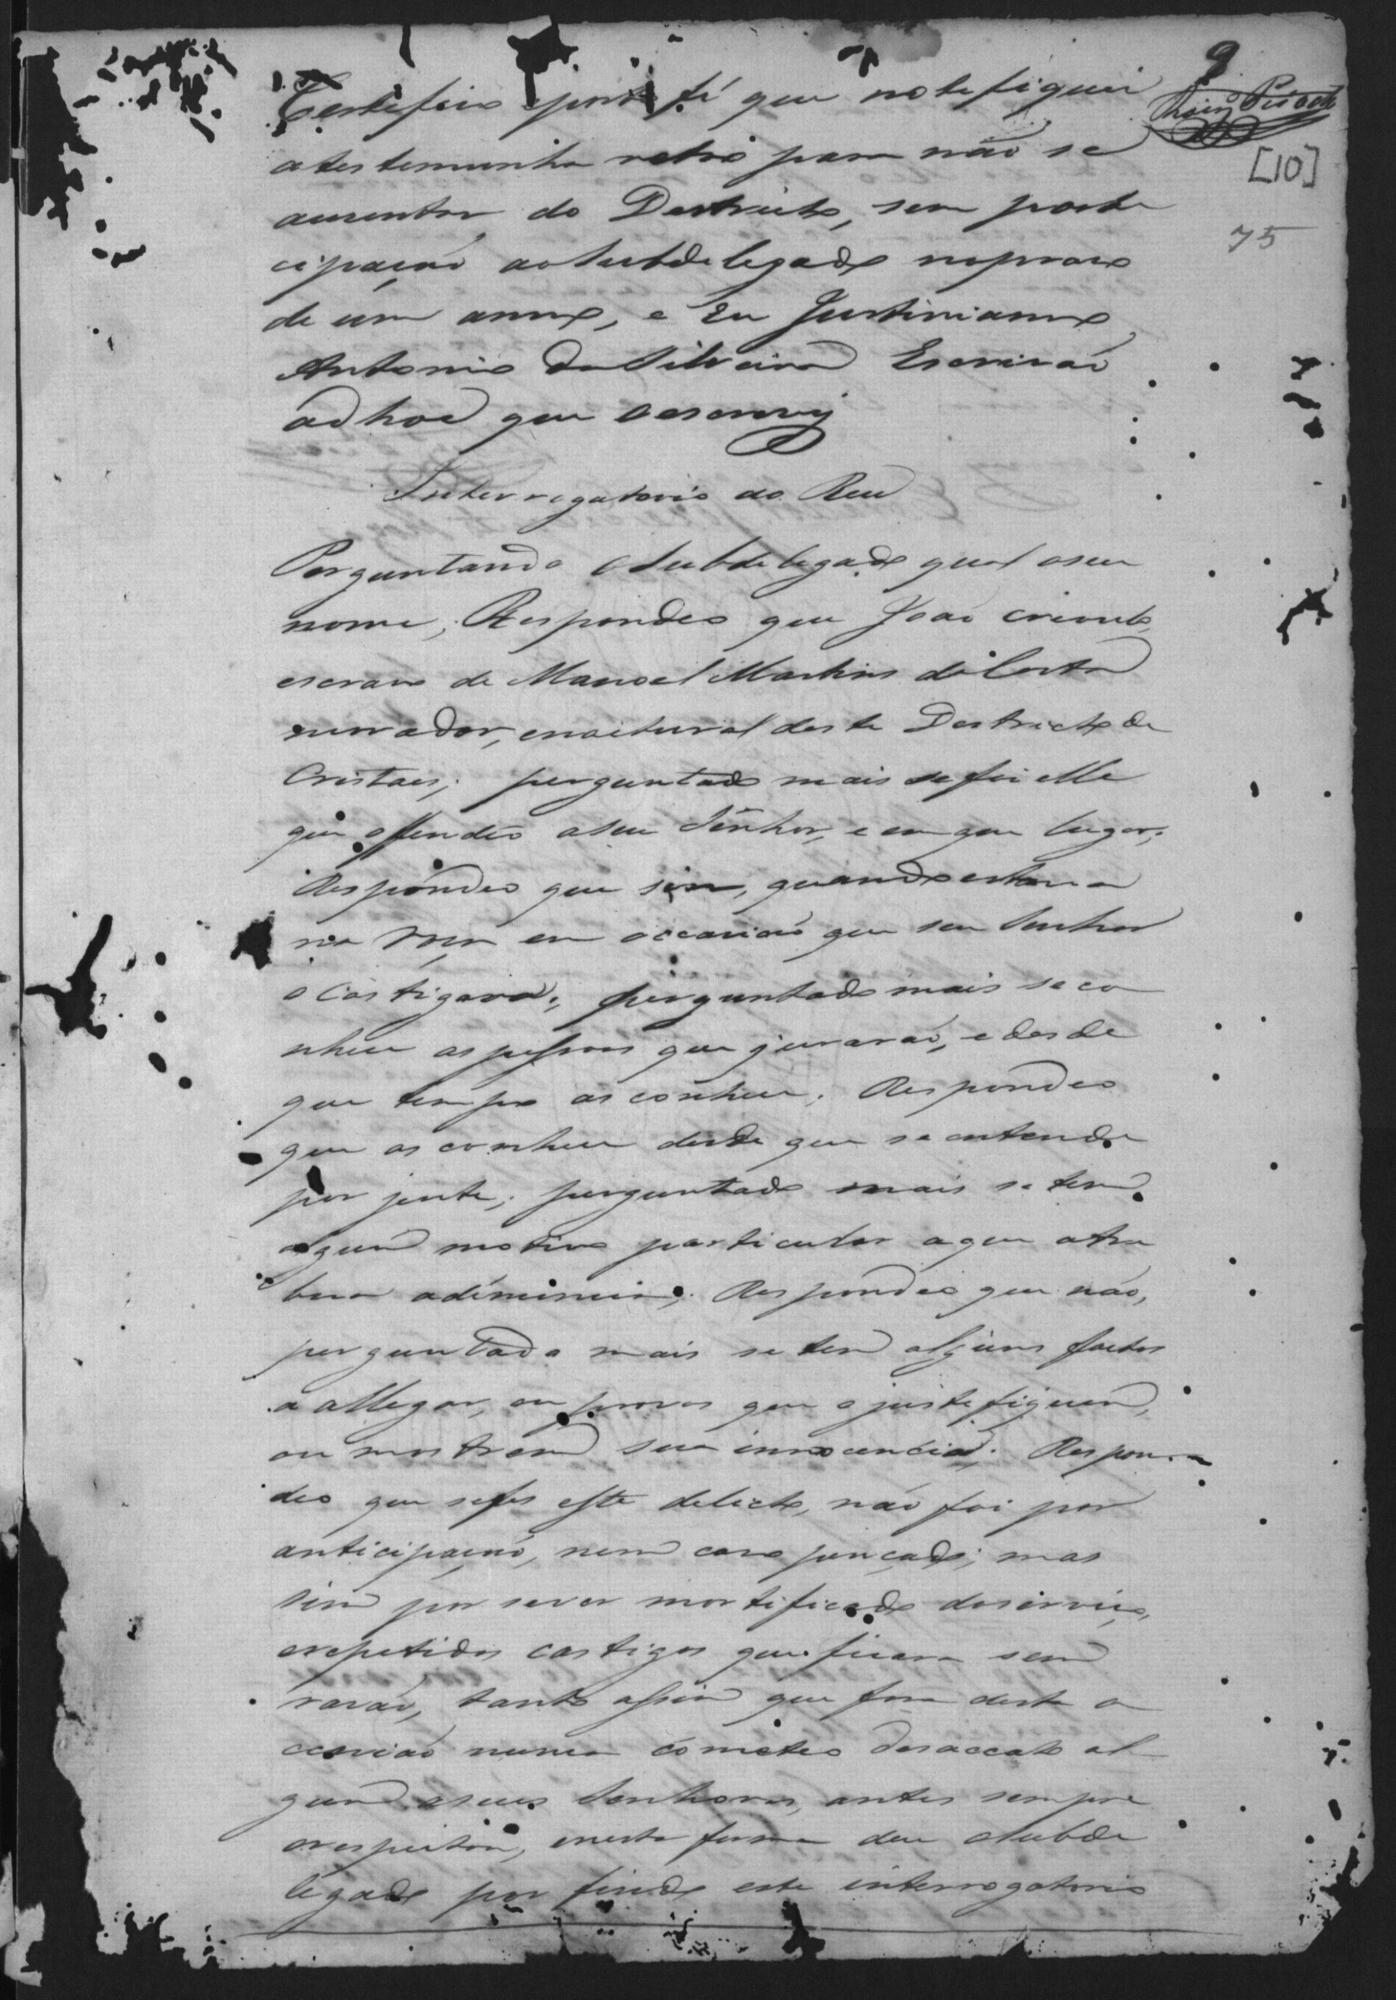 9
[10]
75
Certefico e porto fé que notefiquei
a testemunha retro para não se
ausentar do Destricto, sem parte
cipação ao Subdelegado no praso
de um anno, e Eu Justiniano
Antonio da Silveira Escrivão
ad hoc que o escrevy
Interrogatorio ao Reu
Perguntando o Subdelegado qual o seu
nome, Respondeo que João crioulo,
escravo de Manoel Martins da Costa
morador, e naitural deste Destricto de
Cristaes; perguntado mais se foi elle
que offendeo a seu Senhor, e em que lugar;
Respondeo que sim, quando estava
na roça em occasião que seu Senhor
o castigava; perguntado mais se co
nhece as pessoas que jurarão, e desde
que tempo as conhece; Respondeo
que as conhece desde que se entende
por jente; perguntado mais se tem
algum motivo particular a que atre
bua a denuncia; Respondeo que não,
perguntado mais se tem alguns factos
a allegar, ou provas que o justefiquem,
ou mostrem sua innocencia; Respon
deo que se fes este delicto, não foi por
anticipação, nem caso pençado; mas
sim por se ver mortificado do serviço,
e repetidos castigos que sem
rasão, tanto assim que fora desta o
ccasião nunca cometeo desaccato al
gum a seus Senhores, antes sempre
o respeitou, e nesta forma deu o Subde
legado por findo este interrogatorio